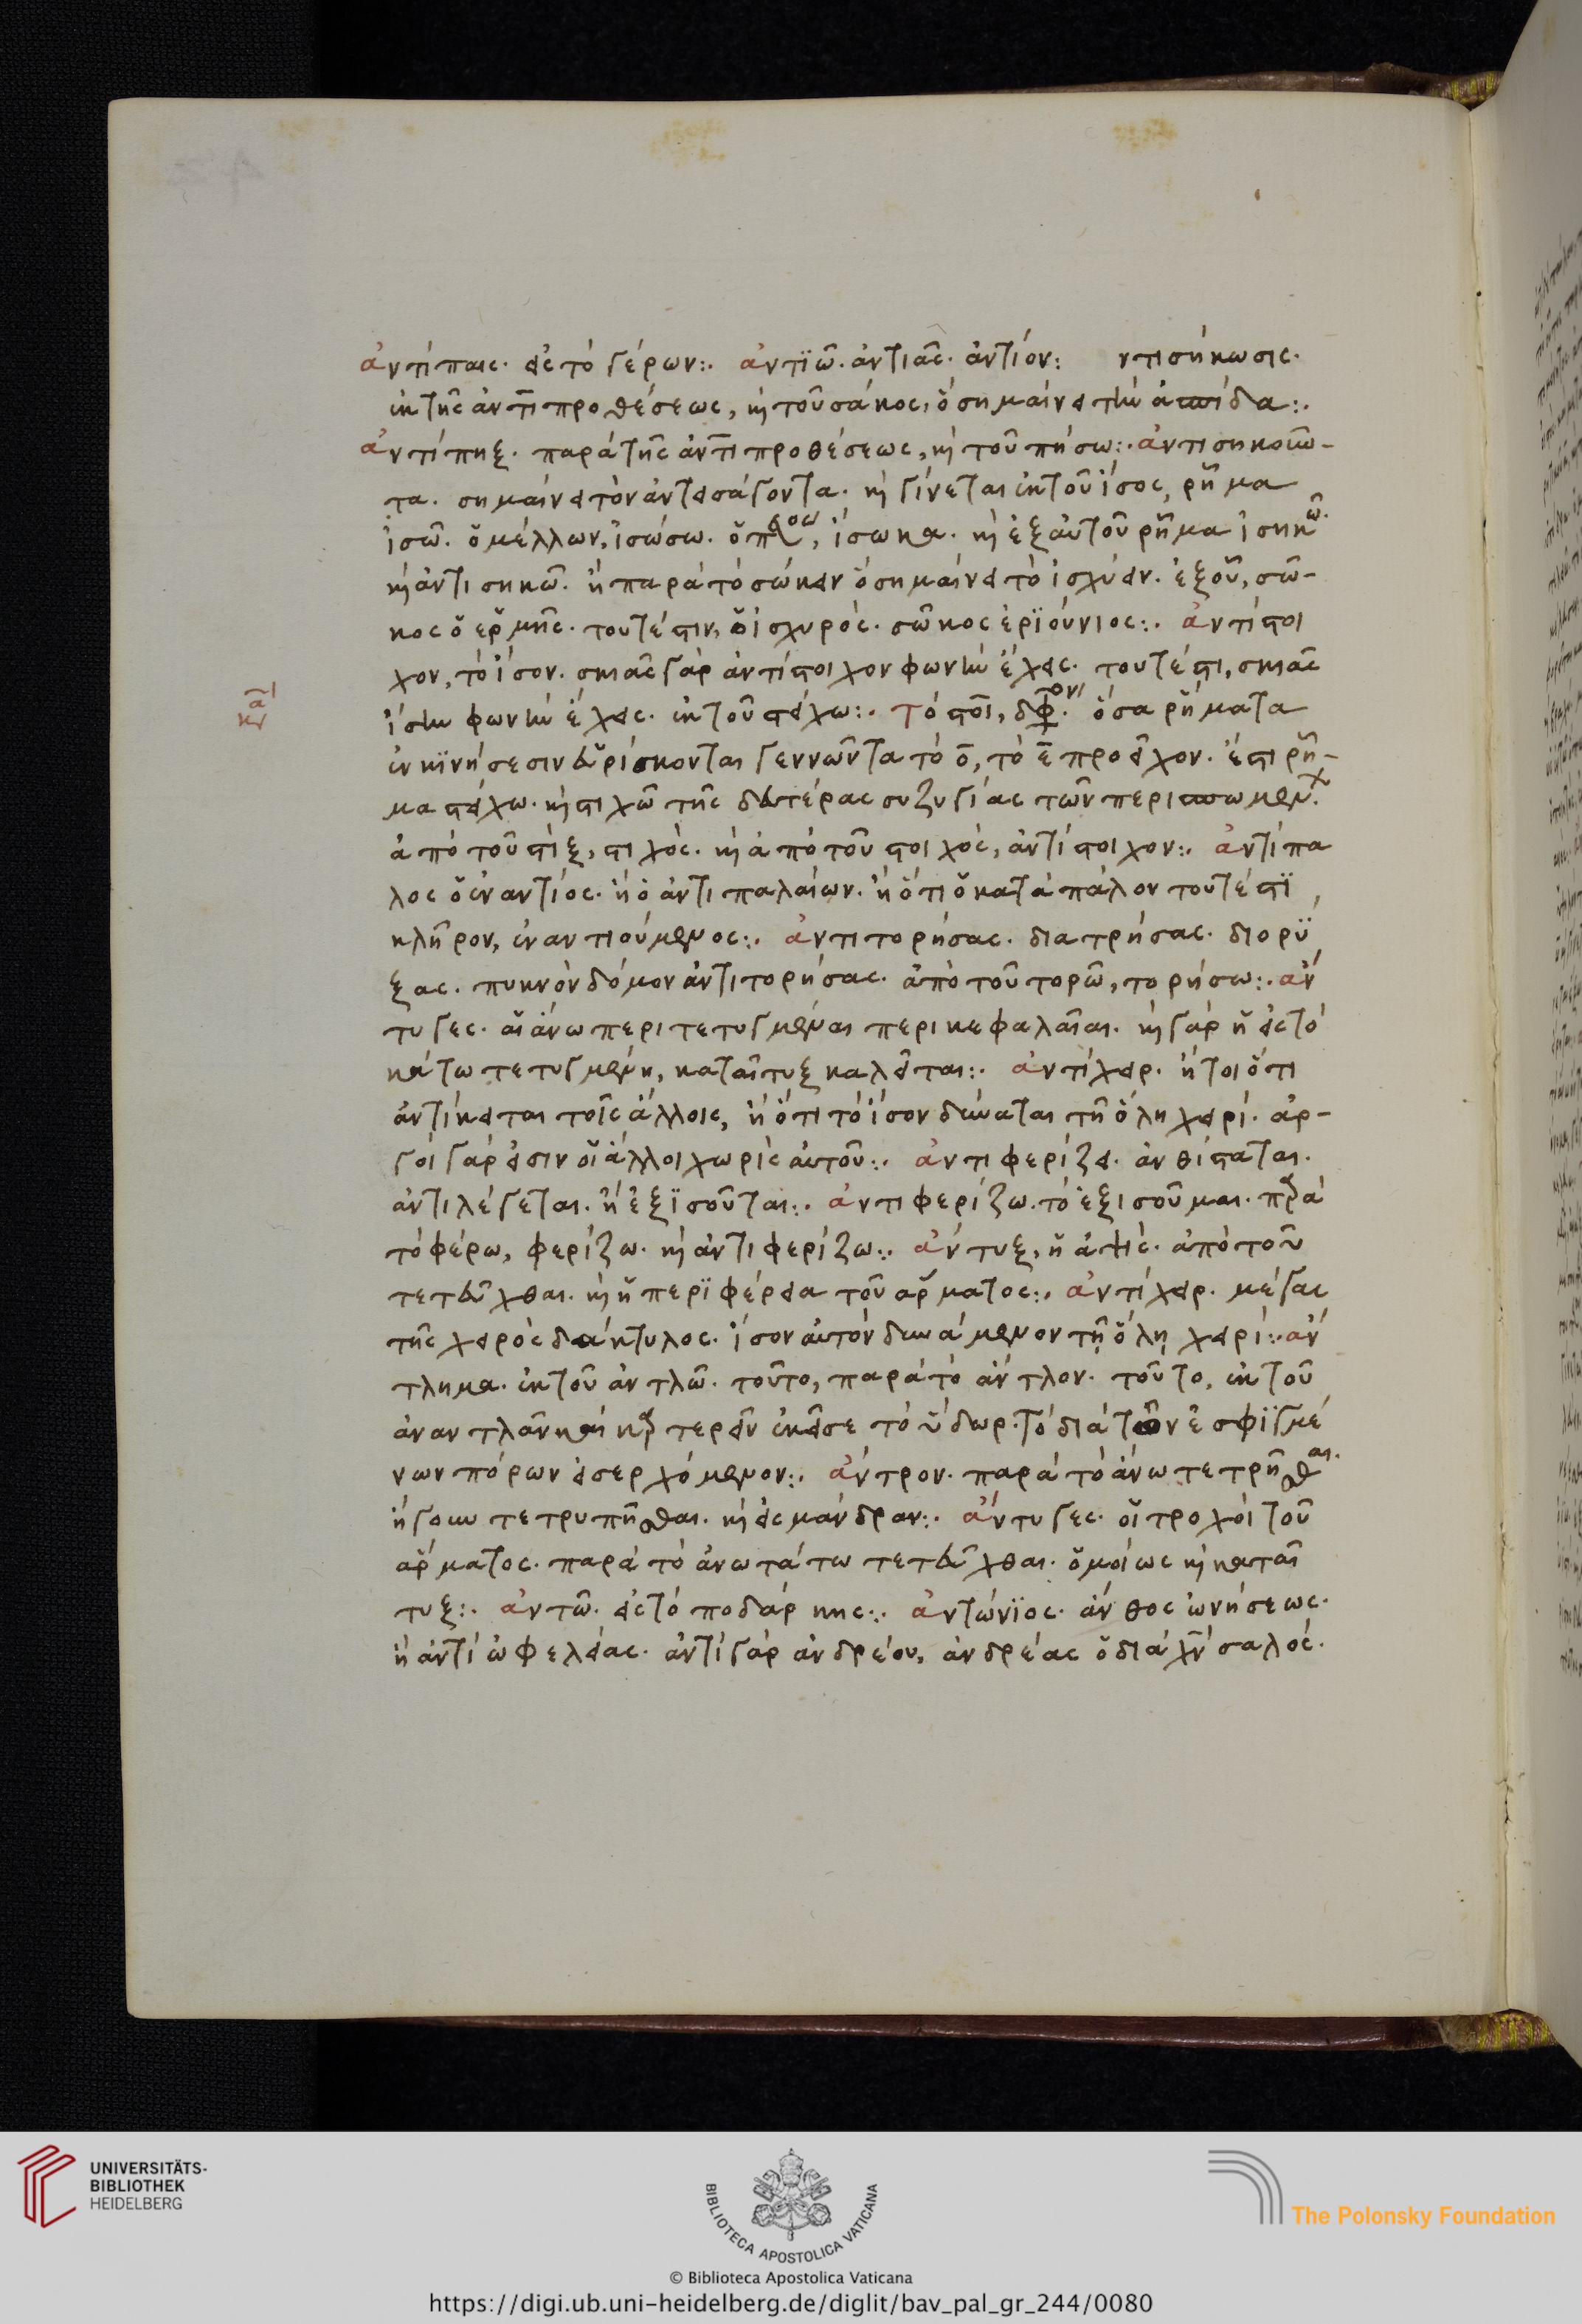 ἀντίπαις· εἰς τὸ γέρων:. ἀντιῶ· ἀντιᾶς· ἀντίον: ντισήκωσις·
ἐκ τῆς ἀντὶ προθέσεως, καὶ τοῦ σάκος, ὃ σημαίνει τὴν ἀσπίδα:.
ἀντίπηξ· παρὰ τῆς ἀντὶ προθέσεως, καὶ τοῦ πήσω:. ἀντισηκοῶ-
τα· σημαίνει τὸν ἀντεισάγοντα· καὶ γίνεται ἐκ τοῦ ἴσος, ῥῆμα
ἰσῶ· ὁ μέλλων, ἰσώσω· ὁ , ἴσωκα· καὶ ἐξ αὐτοῦ ῥῆμα ἰσηκῶ·
καὶ ἀντισηκῶ· ἢ παρὰ τὸ σώκειν ὃ σημαίνει τὸ ἰσχύειν· ἐξ οὗ, σῶ-
κος ὁ ἑρμῆς· τουτέστιν, ὁ ἰσχυρός· σῶκος ἐριούνιος:. ἀντίστοι
χον, τὸ ἴσον· σκιᾶς γὰρ ἀντίστοιχον φωνὴν ἔχεις· τουτέστι, σκιᾶς
ἴσην φωνὴν ἔχεις· ἐκ τοῦ στείχω:. τὸ στοῖ, δφον· ὅσα ῥήματα
ἐν κινήσεσιν εὑρίσκονται γεννῶντα τὸ ο, τὸ ε προσεῖχον· ἔστι ῥῆ-
μα στείχω· καὶ στιχῶ τῆς δευτέρας συζυγίας τῶν περισπωμένων·
ἀπὸ τοῦ στὶξ, στιχός· καὶ ἀπὸ τοῦ στοιχός, ἀντίστοιχον:. ἀντίπα
λος ὁ ἐναντίος· ἢ ὁ ἀντιπαλαίων· ἢ ὅτι ὁ κατὰ πάλον τουτέστι
κλῆρον, ἐναντιούμενος:. ἀντιτορήσας· διατρήσας· διορύ
ξας· πυκνὸν δόμον ἀντιτορήσας· ἀπὸ τοῦ τορῶ, τορήσω:. ἄν
τυγες· αἱ ἄνω περιτετυγμέναι περικεφαλαῖαι· καὶ γὰρ ἡ εἰς τὸ
κάτω τετυγμένη, καταῖτυξ καλεῖται:. ἀντίχειρ· ἤτοι ὅτι
ἀντίκειται τοῖς ἄλλοις, ἢ ὅτι τὸ ἴσον δύναται τῇ ὅλῃ χειρί· ἀρ-
γοὶ γάρ εἰσιν οἱ ἄλλοι χωρὶς αὐτοῦ:. ἀντιφερίζει· ἀνθίσταται·
ἀντιλέγεται· ἢ ἐξισοῦται:. ἀντιφερίζω· τὸ ἐξισοῦμαι· παρὰ
τὸ φέρω, φερίζω· καὶ ἀντιφερίζω:. ἄντυξ, ἡ ἁψίς· ἀπὸ τοῦ
τετεῦχθαι· καὶ ἡ περιφέρεια τοῦ ἅρματος:. ἀντίχειρ· μέγας
τῆς χειρὸς δάκτυλος· ἴσον αὐτὸν δυνάμενον τῇ ὅλῃ χειρί:. ἄν
τλημα· ἐκ τοῦ ἀντλῶ· τοῦτο, παρὰ τὸ ἄντλον· τοῦτο, ἐκ τοῦ
ἀναντλᾶν καὶ καρτερεῖν ἐκεῖσε τὸ ὕδωρ· τὸ διὰ τῶν ἐσφιγμέ
νων πόρων εἰσερχόμενον:. ἄντρον· παρὰ τὸ ἄνω τετρῆσθαι·
ἤγουν τετρυπῆσθαι· καὶ εἰς μάνδραν:. ἄντυγες· οἱ τροχοὶ τοῦ
ἅρματος· παρὰ τὸ ἀνωτάτω τετεῦχθαι· ὁμοίως καὶ καταῖ
τυξ:. ἀντῶ· εἰς τὸ ποδάρκης:. ἀντώνιος· ἄνθος ὠνήσεως·
ἢ ἀντὶ ὠφελείας· ἀντὶ γὰρ ἀνδρέου, ἀνδρέας ὁ διὰ χν σαλός·
UNIVERSITÄTS-
BIBLIOTHEK
HEIDELBERG
BIBLIOTECA APOSTOLICA VATICANA
The Polonsky Foundation
© Biblioteca Apostolica Vaticana
https://digi.ub.uni-heidelberg.de/diglit/bav_pal_gr_244/0080